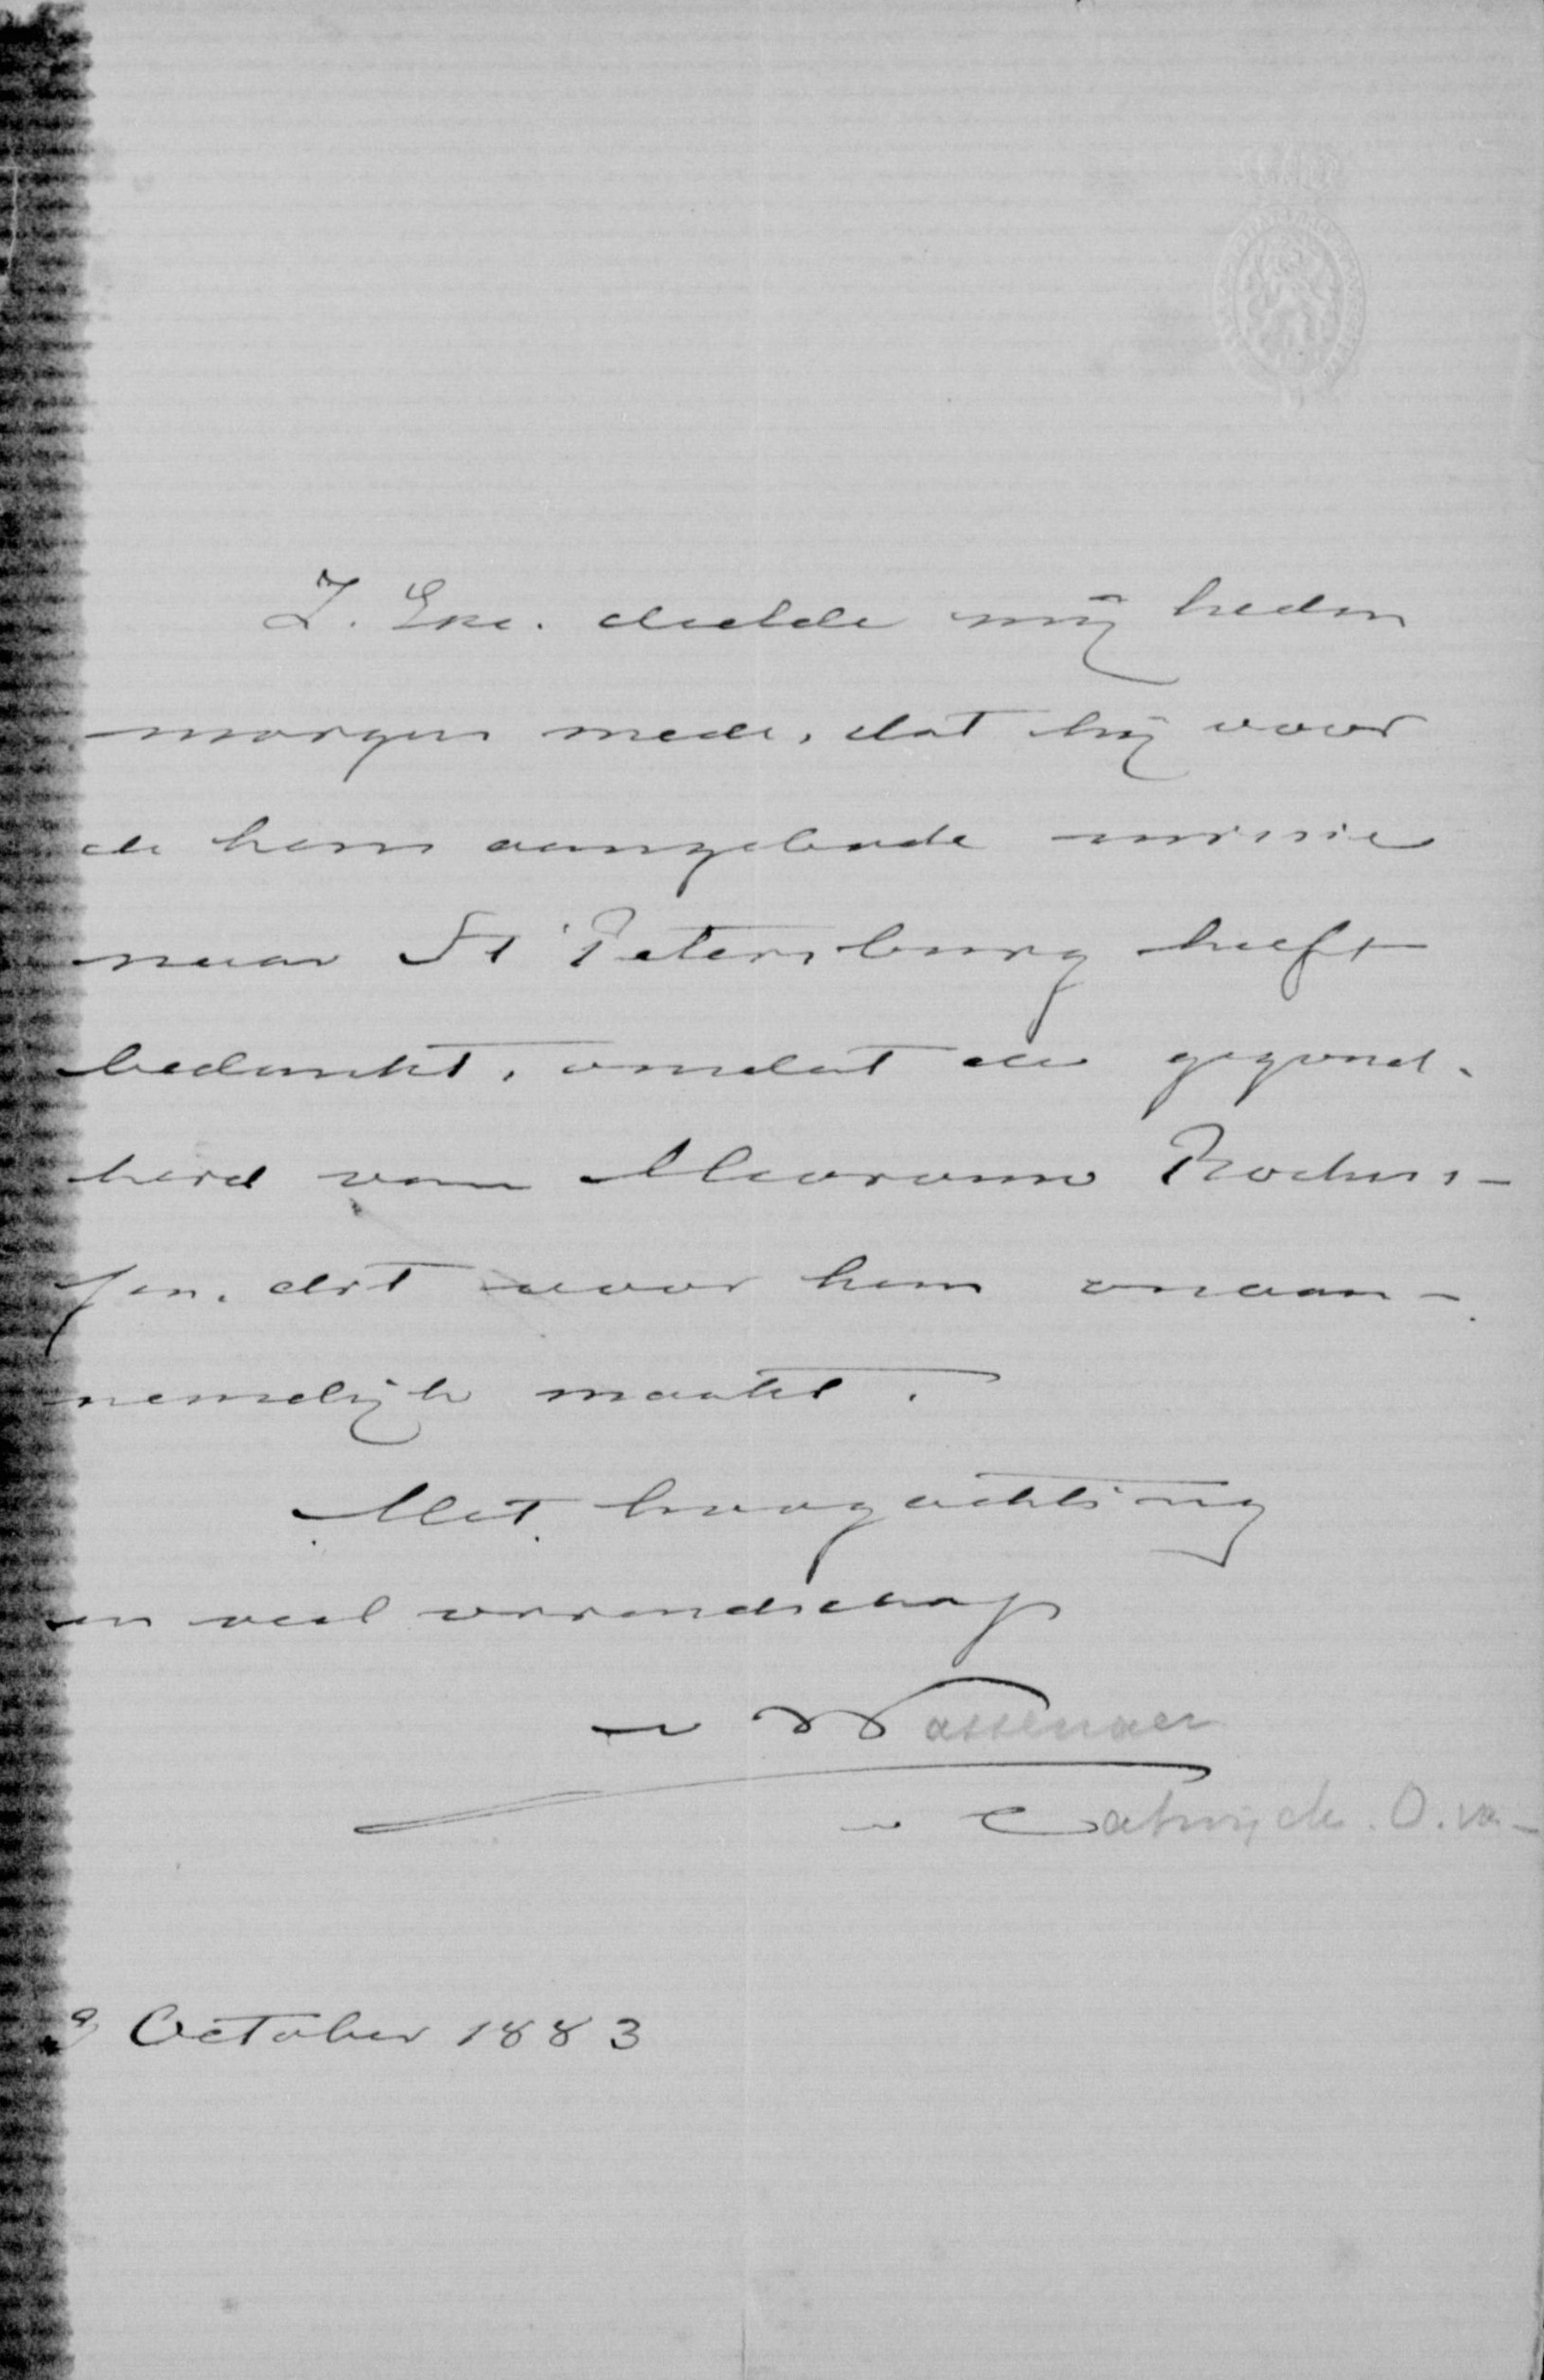 Z. Exc. deelde mij heden
morgen mede, dat hij voor
de hem aangebode missie
naar St Petersburg heeft
bedankt, omdat de gezond-
heid van Mevrouw Rochus-
sen, dit voor hem onaan-
nemelijk maakt.
Met hoogachting
en veel vriendschap
v Wassenaer
v Catwijck. O.
9 October 1883